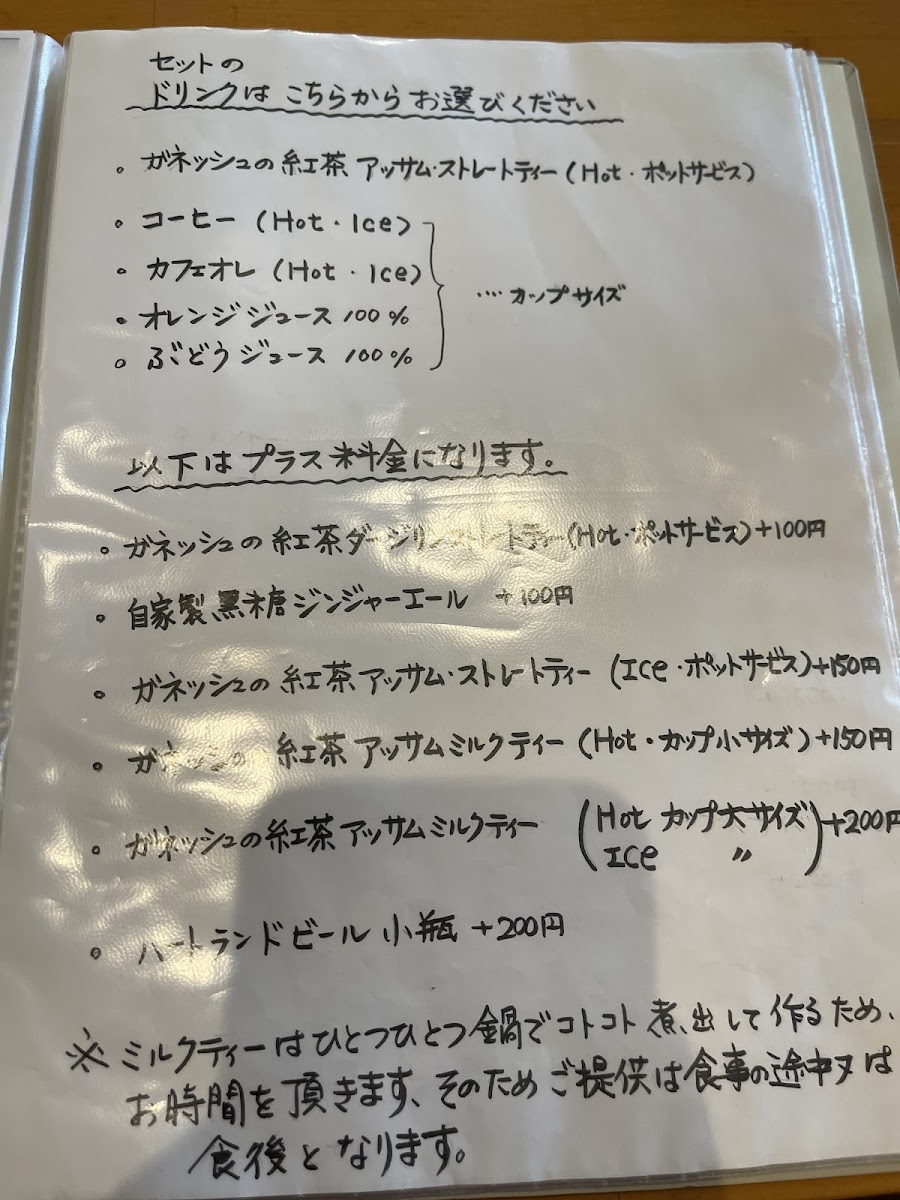 セットの
ドリンクは こちらからお選びください
。ガネッシュの紅茶 アッサム・ストレートティー(Hot・ポットサービス)
・コーヒー (Hot・Ice)
・カフェオレ (Hot・Ice)
・・・・カップサイズ
・オレンジジュース 100%
。ぶどうジュース 100%
以下はプラス料金になります。
・ガネッシュの紅茶ダージリンストレートティー(Hot・ポットサービス)+100円
。自家製黒糖ジンジャーエール +100円
・ガネッシュの紅茶アッサム・ストレートティー (Ice・ポットサービス)+150円
・ガネッシュの紅茶アッサムミルクティー (Hot・カップ小サイズ)+150円
・ガネッシュの紅茶アッサムミルクティー (Hot カップ大サイズ)+200円
(Ice 〃)
。ハートランドビール 小瓶 +200円
※ミルクティーはひとつひとつ鍋でコトコト煮出して作るため、
お時間を頂きます、そのためご提供は食事の途中又は
食後となります。